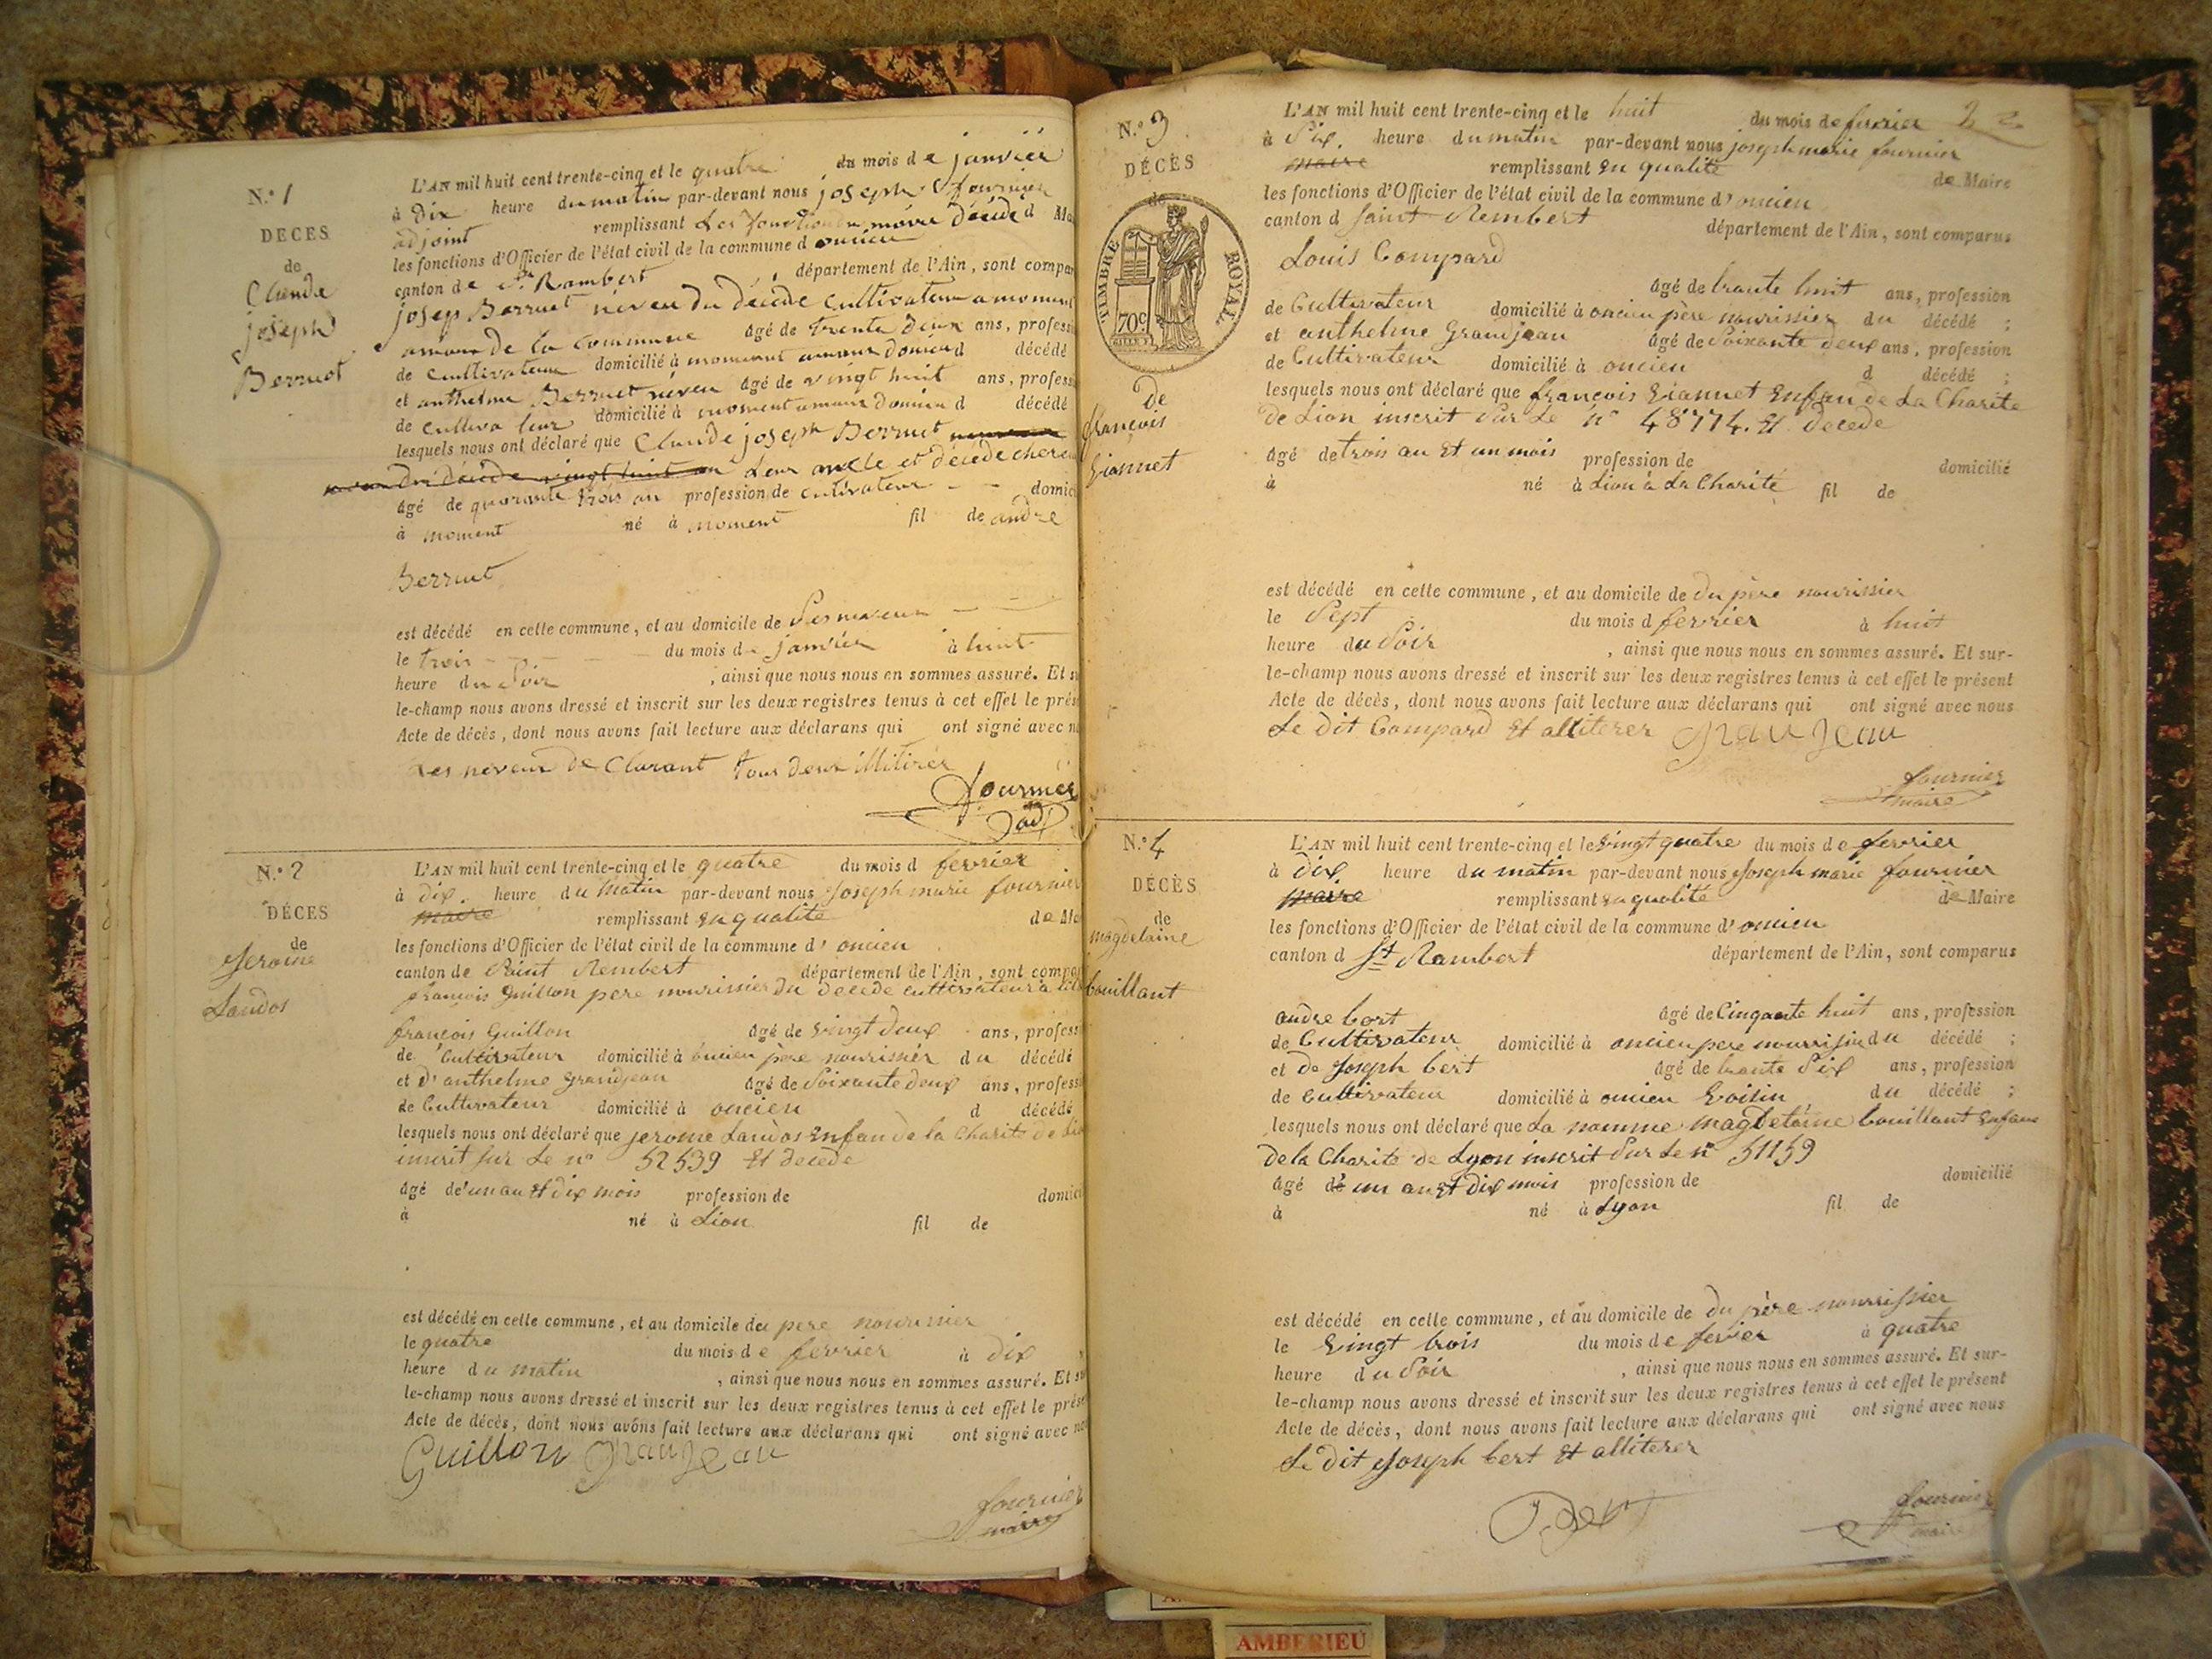 N.° 1
DÉCÈS
de
Claude
joseph
Berruet
L'AN mil huit cent trente-cinq et le quatre du mois de janvier
à Dix heure du matin par-devant nous joseph fournier
adjoint remplissant Les fonction du maire décédé d
les fonctions d'Officier de l'état civil de la commune d oncieu
canton de St Rambert département de l'Ain, sont compar
josep Berruet neveu du décédé cultivateur a moment
de la commune âgé de trente deux ans, profess
de cultivateur domicilié à moment d décédé
et anthelme Berruet neveu âgé de vingt huit ans, profess
de cultiva teur domicilié à moment d décédé
lesquels nous ont déclaré que Claude joseph Berruet
du décédé vingt huit an Leur oncle et décédé
âgé de quarante trois an profession de cultivateur domic
à moment né à moment fil de andré
Berruet
est décédé en cette commune, et au domicile de Ses neveux
le trois du mois de janvier à huit
heure du Soir , ainsi que nous nous en sommes assuré. Et s
le-champ nous avons dressé et inscrit sur les deux registres tenus à cet effet le prés
Acte de décès, dont nous avons fait lecture aux déclarans qui ont signé avec n
Les neveux De Clarant tous deux illitirés
fournier
adj
N.° 2
DÉCÈS
de
Jerome
Landos
L'AN mil huit cent trente-cinq et le quatre du mois d fevrier
à dix. heure du Matin par-devant nous Joseph marie fournier
maire remplissant en qualité de Ma
les fonctions d'Officier de l'état civil de la commune d' oncieu
canton de Saint Rembert département de l'Ain, sont compa
françois Guillon pere nourissier du décédé cultivateur à
françois Guillon âgé de vingt deux ans, profess
de Cultivateur domicilié à oncieu père nourissier du décédé
et d'anthelme Grandjean âgé de Soixante deux ans, profess
de Cultivateur domicilié à oncieu d décédé
lesquels nous ont déclaré que jerome Landos Enfan de la Charité de
inscrit sur Le n° 52539 Et décédé
âgé de un an Et dix mois profession de domici
à né à Lion fil de
est décédé en cette commune, et au domicile du pere nourissier
le quatre du mois de fevrier à dix
heure du matin , ainsi que nous nous en sommes assuré. Et s
le-champ nous avons dressé et inscrit sur les deux registres tenus à cet effet le prés
Acte de décès, dont nous avons fait lecture aux déclarans qui ont signé avec no
Guillon GranJean
fournier
maire
2
N.° 3
DÉCÈS
de
TIMBRE ROYAL
70c
de
françois
Viannet
L'AN mil huit cent trente-cinq et le huit du mois de fevrier
à Dix. heure du matin par-devant nous joseph marie fournier
maire remplissant en qualité de Maire
les fonctions d'Officier de l'état civil de la commune d' oncieu
canton d Saint Rembert département de l'Ain, sont comparus
Louis Compard
âgé de trante huit ans, profession
de Cultivateur domicilié à oncieu père nourissier du décédé ;
et anthelme Grandjean âgé de Soixante deux ans, profession
de Cultivateur domicilié à oncieu d décédé ;
lesquels nous ont déclaré que françois Viannet Enfan de La Charité
de Lion inscrit Sur Le n° 48774. Et décédé
âgé de trois an Et un mois profession de domicilié
à né à Lion à La Charité fil de
est décédé en cette commune, et au domicile de du père nourissier
le Sept du mois d fevrier à huit
heure du Soir , ainsi que nous nous en sommes assuré. Et sur-
le-champ nous avons dressé et inscrit sur les deux registres tenus à cet effet le présent
Acte de décès, dont nous avons fait lecture aux déclarans qui ont signé avec nous
Le dit Compard Et alliterer GranJean
fournier
maire
N.° 4
DÉCÈS
de
magdelaine
bouillant
L'AN mil huit cent trente-cinq et le vingt quatre du mois de fevrier
à dix heure du matin par-devant nous Joseph marie fournier
maire remplissant en qualité de Maire
les fonctions d'Officier de l'état civil de la commune d'oncieu
canton d St Rambert département de l'Ain, sont comparus
andre bert âgé de Cinquante huit ans, profession
de Cultivateur domicilié à oncieu pere nourrisier du décédé ;
et de Joseph bert âgé de trante Six ans, profession
de Cultivateur domicilié à oncieu Voisin du décédé ;
lesquels nous ont déclaré que La nomme magdelaine bouillant Enfant
de la Charité de Lyon inscrit Sur Le n° 51159
âgé de un an Et Dix mois profession de domicilié
à né à Lyon fil de
est décédé en cette commune, et au domicile de du père nourrissier
le Vingt trois du mois de fevier à quatre
heure du Soir , ainsi que nous nous en sommes assuré. Et sur-
le-champ nous avons dressé et inscrit sur les deux registres tenus à cet effet le présent
Acte de décès, dont nous avons fait lecture aux déclarans qui ont signé avec nous
Le dit Joseph bert Et alliterer
fournier
maire
AMBERIEU